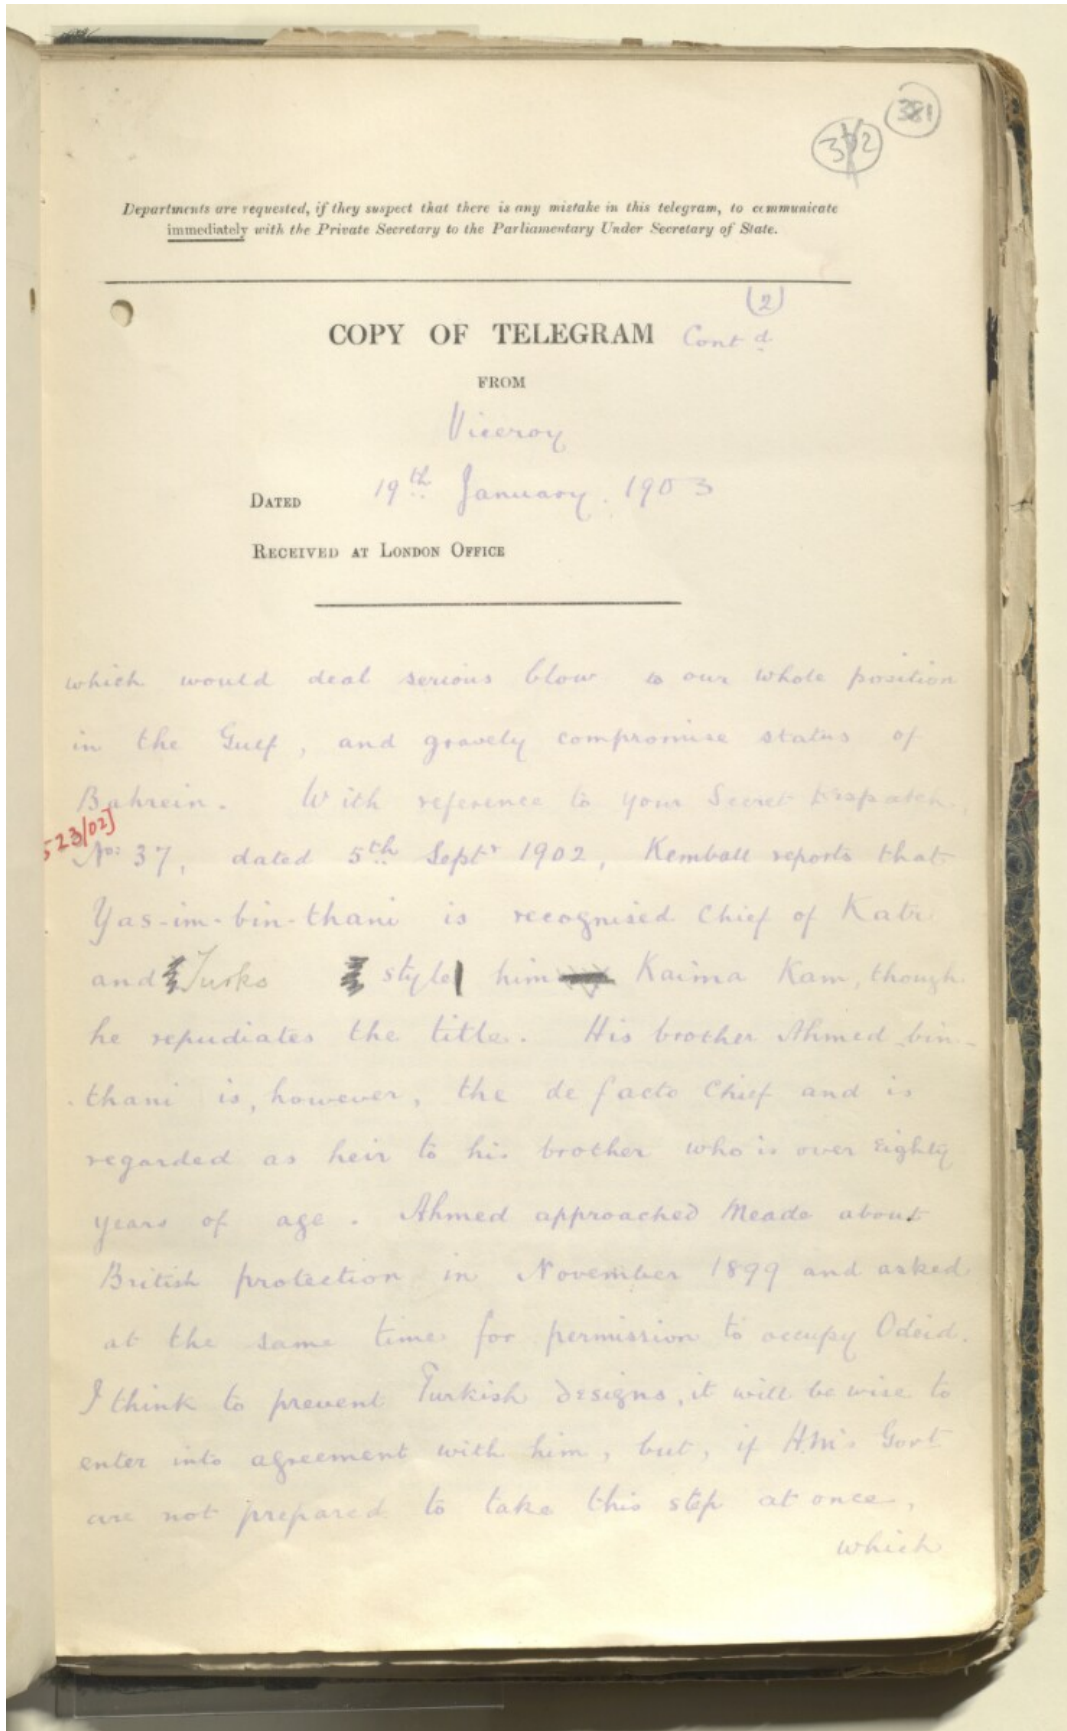 381
372
Departments are requested, if they suspect that there is any mistake in this telegram, to communicate
immediately with the Private Secretary to the Parliamentary Under Secretary of State.
(2)
COPY OF TELEGRAM Contd
FROM
Viceroy
DATED 19th January. 1903
RECEIVED AT LONDON OFFICE
which would deal serious blow to our whole position
in the Gulf, and gravely compromise status of
Bahrein. With reference to your Secret Despatch
523/02]
No: 37, dated 5th Septr 1902, Kemball reports that
Yas-im-bin-thani is recognised Chief of Katr
and Turks style him Kaima Kam, though
he repudiates the title. His brother Ahmed-bin-
-thani is, however, the de facto Chief and is
regarded as heir to his brother who is over Eighty
years of age. Ahmed approached Meade about
British protection in November 1899 and asked
at the same time for permission to occupy Odeid.
I think to prevent Turkish designs, it will be wise to
enter into agreement with him, but, if HM's Govt
are not prepared to take this step at once,
which